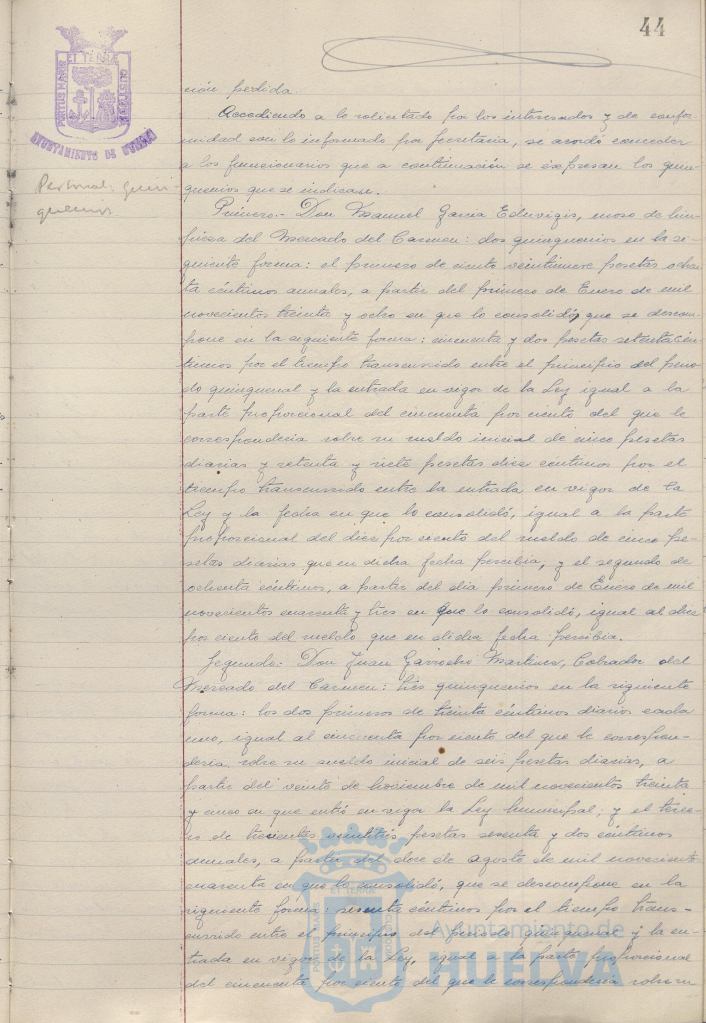 44
PORTUS MARIS ET TERRAE CUSTODIA
AYUNTAMIENTO DE HUELVA
Personal: quin-
quenios
ción perdida.
Accediendo a lo solicitado por los interesados y de confor-
midad con lo informado por Secretaria, se acordó conceder
a los funcionarios que a continuación se expresan los quin-
quenios que se indican.
Primero.- Don Manuel Garcia Eduvigis, mozo de lim-
pieza del Mercado del Carmen: dos quinquenios en la si-
guiente forma: el primero de ciento veintinueve pesetas ochen-
ta céntimos anuales, a partir del primero de Enero de mil
novecientos treinta y ocho en que lo consolidó, que se descom-
pone en la siguiente forma: cincuenta y dos pesetas setenta cén-
timos por el tiempo transcurrido entre el principio del perio-
do quinquenal y la entrada en vigor de la Ley igual a la
parte proporcional del cincuenta por ciento del que le
correspondería sobre su sueldo inicial de cinco pesetas
diarias y setenta y siete pesetas diez céntimos por el
tiempo transcurrido entre la entrada en vigor de la
Ley y la fecha en que lo consolidó, igual a la parte
proporcional del diez por ciento del sueldo de cinco pe-
setas diarias que en dicha fecha percibia, y el segundo de
ochenta céntimos, a partir del dia primero de Enero de mil
novecientos cuarenta y tres en que lo consolidó, igual al diez
por ciento del sueldo que en dicha fecha percibia.
Segundo: Don Juan Garrocho Martinez, Cobrador del
Mercado del Carmen: tres quinquenios en la siguiente
forma: los dos primeros de treinta céntimos diarios cada
uno, igual al cincuenta por ciento del que le correspon-
deria sobre su sueldo inicial de seis pesetas diarias, a
partir del veinte de Noviembre de mil novecientos treinta
y cinco en que entró en vigor la Ley Municipal; y el terce-
ro de trecientas veintitrés pesetas sesenta y dos céntimos
anuales, a partir del doce de agosto de mil novecientos
cuarenta en que lo consolidó, que se descompone en la
siguiente forma: sesenta céntimos por el tiempo trans-
currido entre el principio del periodo quinquenal y la en-
trada en vigor de la Ley, igual a la parte proporcional
del cincuenta por ciento del que le correspondería sobre su
PORTUS MARIS ET TERRAE CUSTODIA
Ayuntamiento de
HUELVA